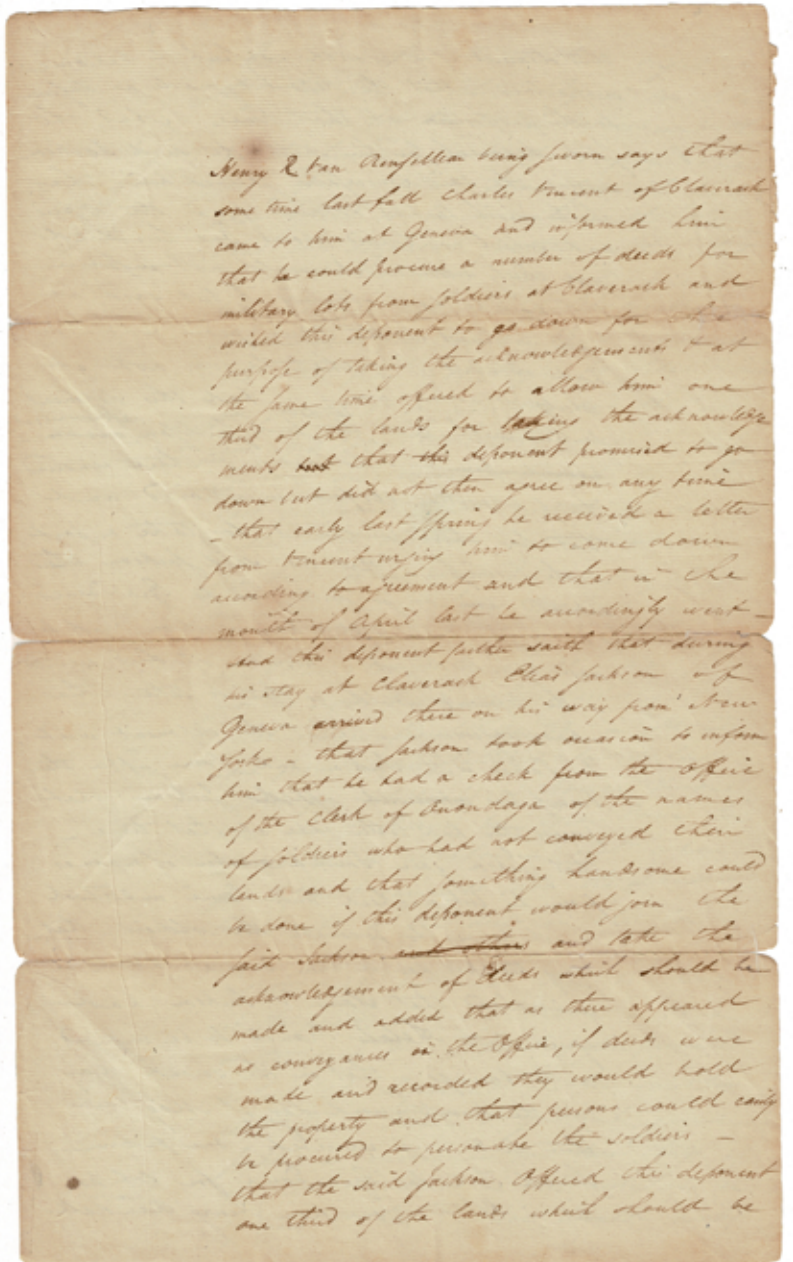 Henry R Van Rensellear being sworn says that
some time last fall Charles Vincent of Claverack
came to him at Geneva and informed him
that he could procure a number of deeds for
military lots from soldiers at Claverack and
wished this deponent to go down for the
purpose of taking the acknowledgements & at
the same time offered to allow him one
third of the lands for taking the acknowledge
ments that this deponent promised to go
down but did not then agree on any time
- that early last spring he received a letter
from Vincent urging him to come down
according to agreement and that in the
month of April last he accordingly went -
And this deponent further saith that during
his stay at Claverack Elias Jackson of
Geneva arrived there on his way from New
York - that Jackson took occasion to inform
him that he had a check from the Office
of the Clerk of Onondaga of the names
of soldiers who had not conveyed their
lands and that something handsome could
be done if this deponent would join the
said Jackson and others and take the
acknowledgement of deeds which should be
made and added that as there appeared
no conveyances in the Office, if deeds were
made and recorded they would hold
the property and that persons could easily
be procured to personate the soldiers -
that the said Jackson Offered this deponent
one third of the lands which should be